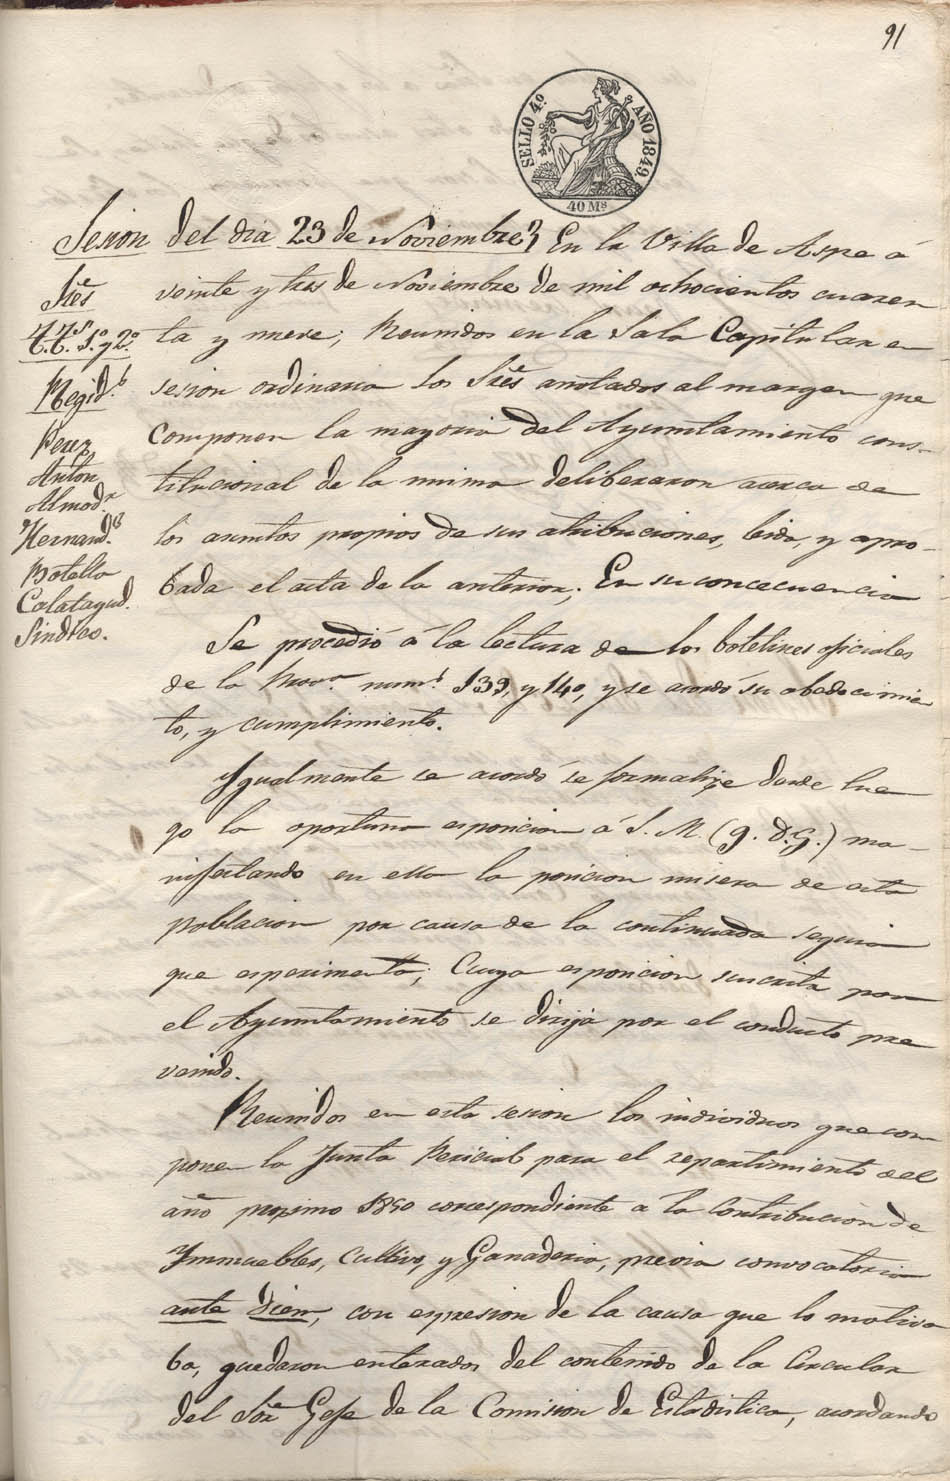 91
SELLO 4º AÑO 1849.
40 Ms
Sesion del dia 23 de Noviembre } En la Villa de Aspe á
Sres veinte y tres de Noviembre de mil ochocientos cuaren
T.T.s 1º y 2º ta y nueve; Reunidos en la Sala Capitular en
Regid.s sesion ordinaria los Sres anotados al margen que
Perez componen la mayoria del Ayuntamiento cons-
Anton titucional de la misma deliberaron acerca de
Almod.r
Hernand.s los asuntos propios de sus atribuciones, leida, y apro-
Botella bada el acta de la anterior; En su concecuencia
Calatayud.
Sindico.
Se procedió á la lectura de los boletines oficiales
de la Prov.a num.s 139, y 140, y se acordó su obedecimien
to, y cumplimiento.
Ygualmente se acordó se formalize desde lue
go la oportuna esposicion á S. M. (q. D. G.) ma-
nifestando en ella la posicion misera de esta
poblacion por causa de la continuada sequia
que esperimenta; Cuya esposicion suscrita por
el Ayuntamiento se dirija por el conducto pre
venido.
Reunidos en esta sesion los individuos que com
ponen la Junta Pericial para el repartimiento del
año prosimo 1850 correspondiente a la Contribucion de
Ynmuebles, Cultivo, y Ganaderia, previa convocatoria
ante diem, con espresion de la causa que lo motiva
ba, quedaron enterados del contenido de la Circular
del Sor Gefe de la Comision de Estadistica, acordando